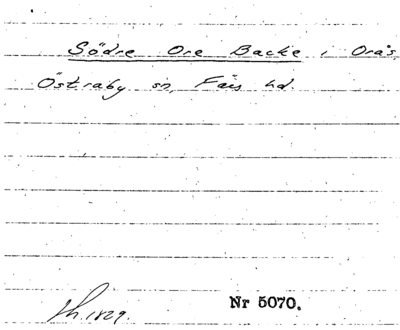 Södre Ore Backe i Orås
Östraby sn, Färs hd.
1829.
Nr 5070.